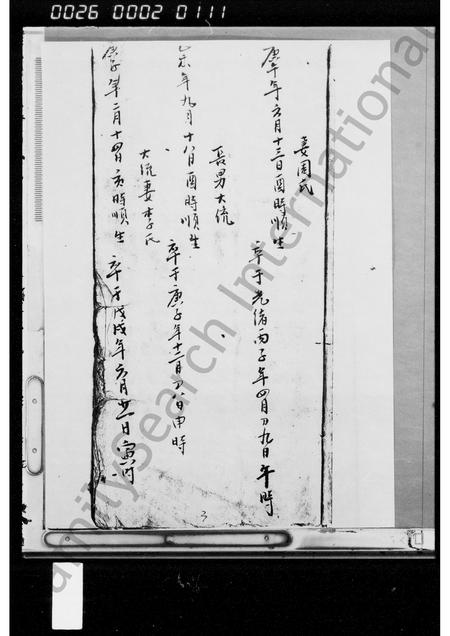 0026 0002 0111
妻周氏
庚午年六月十三日酉時順生 卒于光緒丙子年四月初九日午時
長男大統
乙未年九月十八日酉時順生 卒于庚子年十二月初八日申時
大統妻李氏
庚子年二月十四日亥時順生 卒于戊戌年六月廿一日寅時
3
FamilySearch International